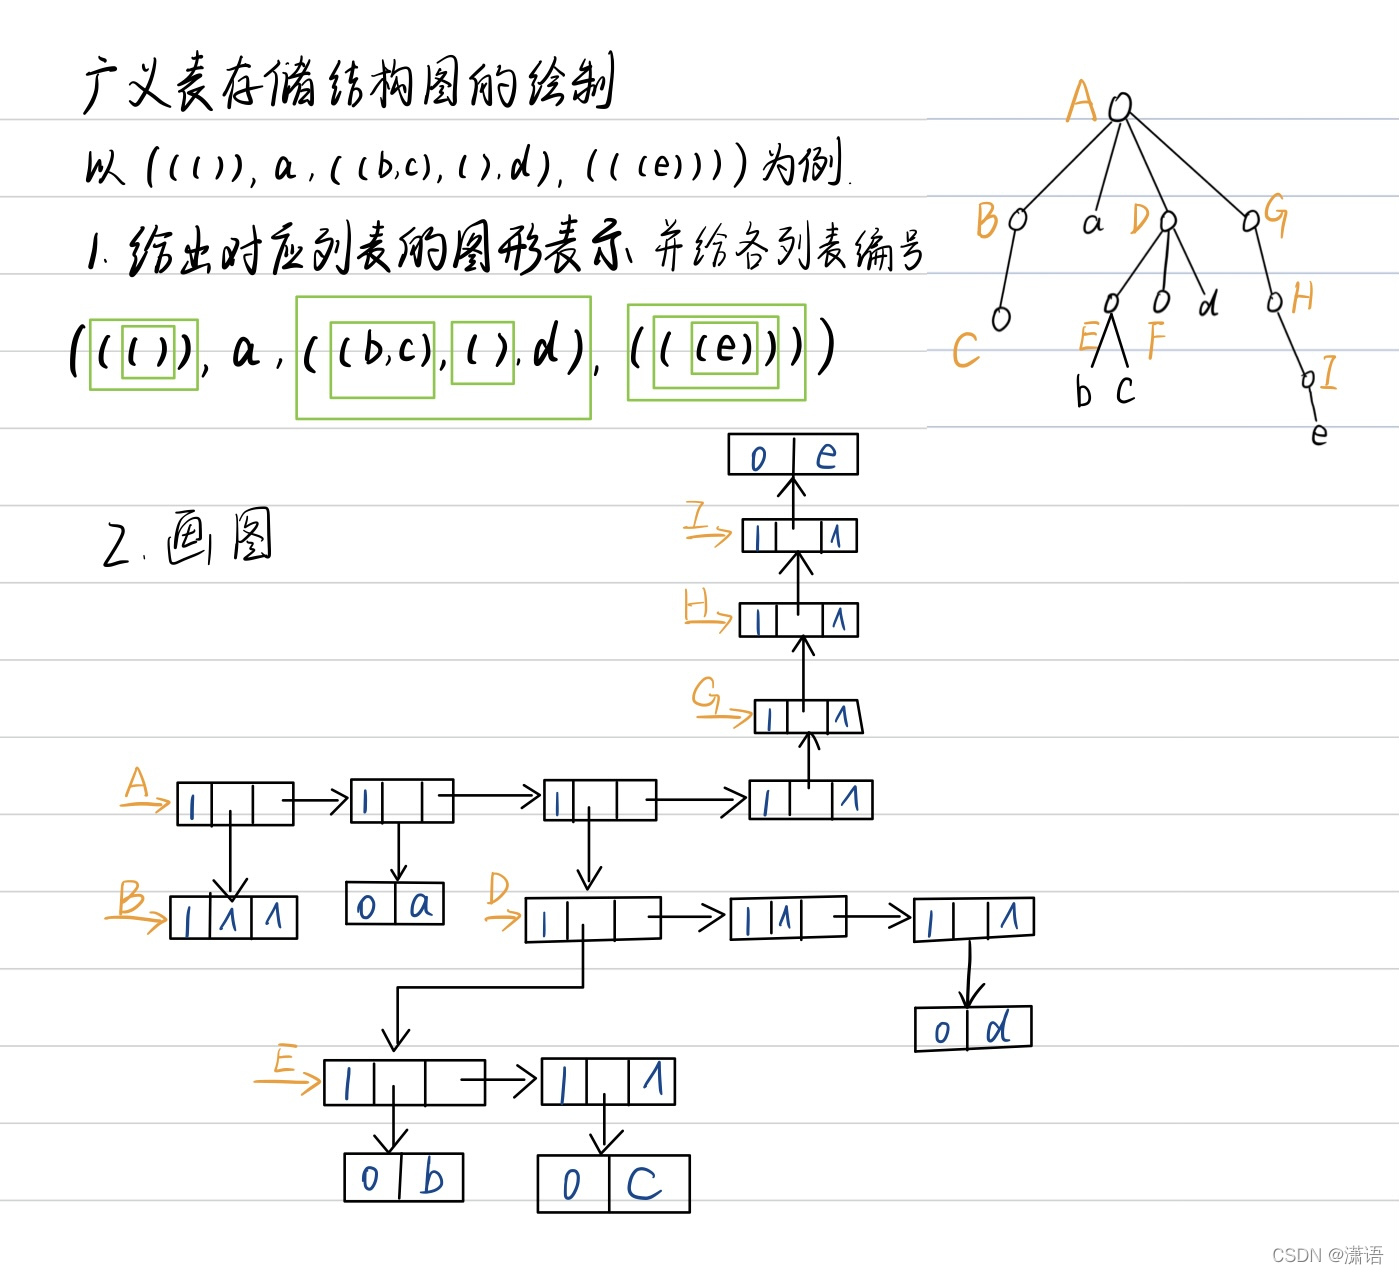 广义表存储结构图的绘制
以((()),a,((b,c),(),d),(((e))))为例.
1.给出对应列表的图形表示 并给各列表编号
((()),a,((b,c),(),d),(((e))))
A
B a D G
C E F d H
b c I
e
2.画图
0 e
I 1 ∧
H 1 ∧
G 1 ∧
A 1 1 1 1 ∧
B 1 ∧ ∧ 0 a D 1 1 ∧ 1 ∧
0 d
E 1 1 ∧
0 b 0 c
CSDN @潇语